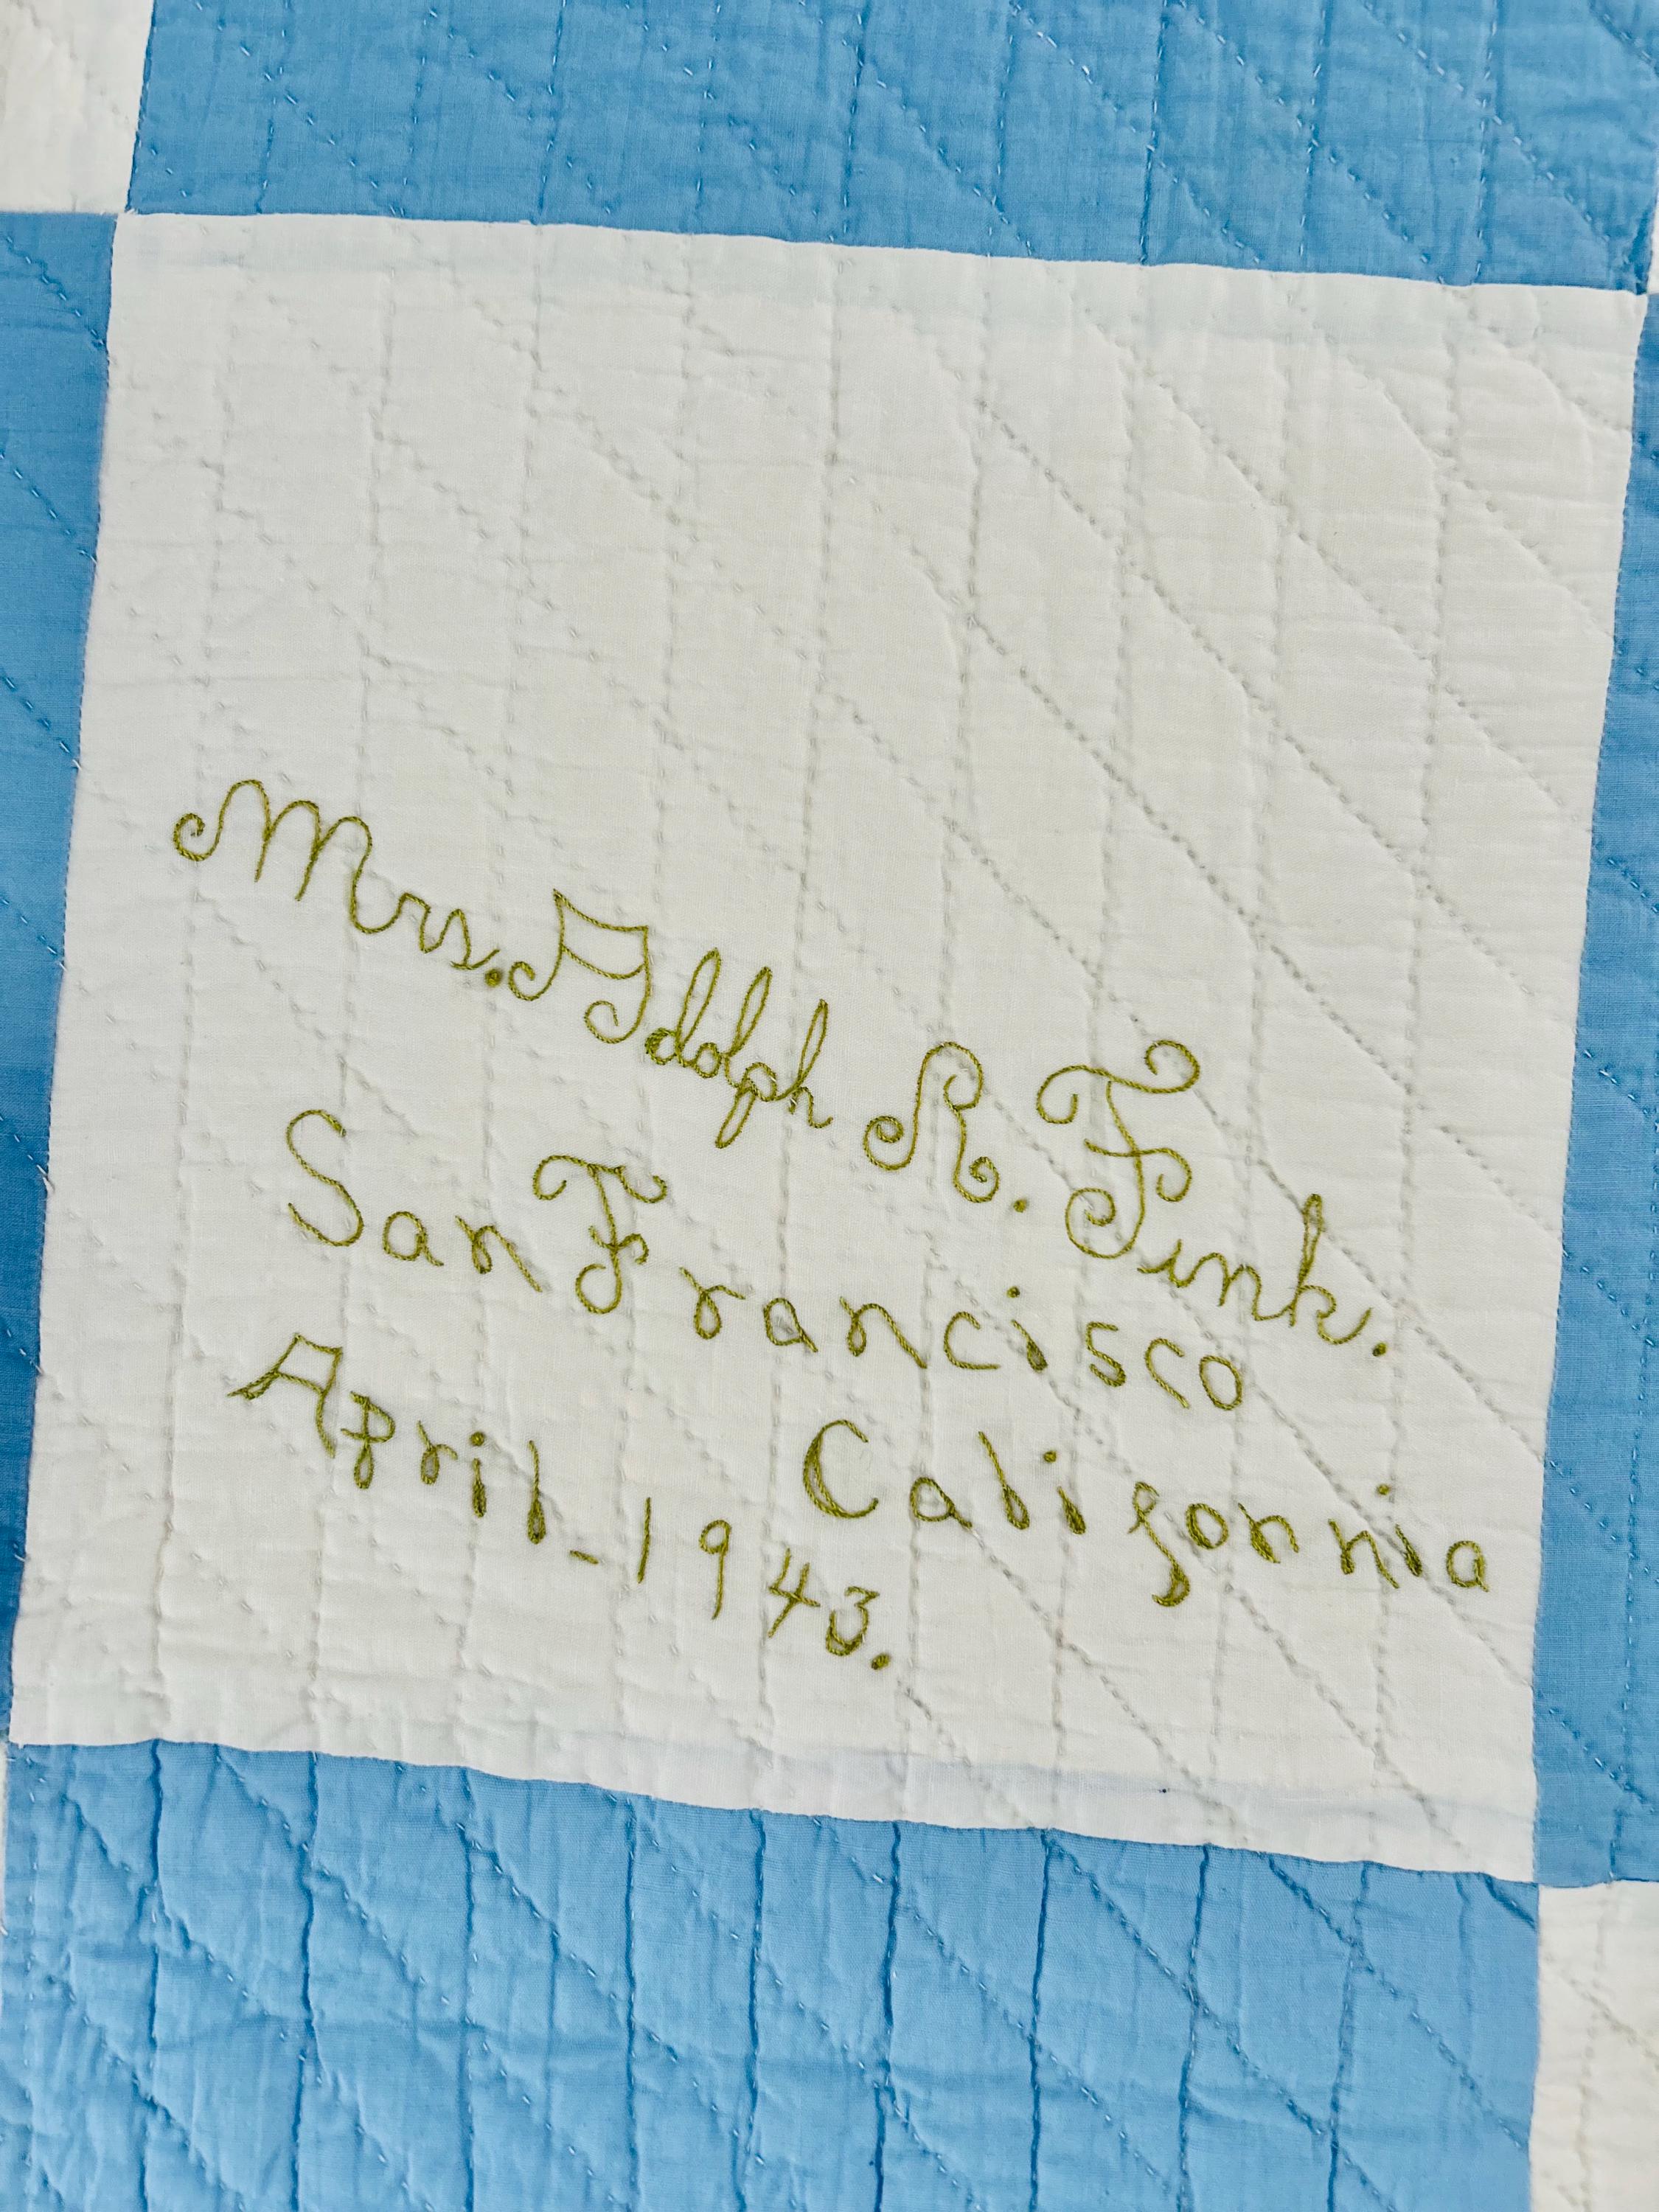 Mrs. Adolph R. Fink.
San Francisco
California
April-1943.